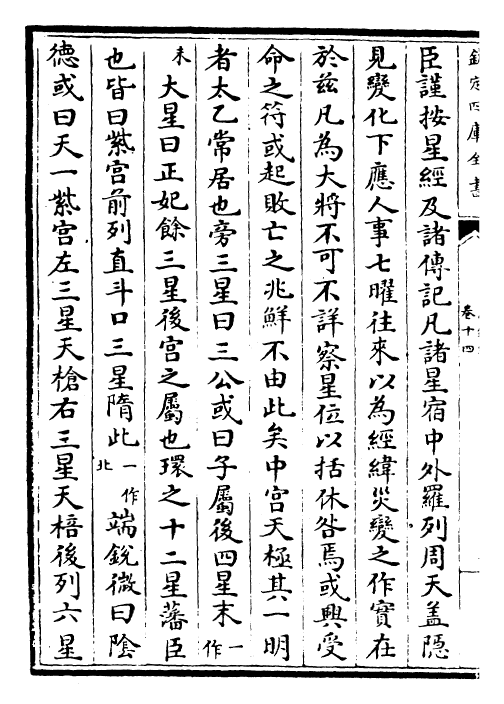 欽定四庫全書
卷十四
臣謹按星經及諸傳記凡諸星宿中外羅列周天蓋隠
見變化下應人事七曜往來以為經緯災變之作實在
於兹凡為大將不可不詳察星位以括休咎焉或興受
命之符或起敗亡之兆鮮不由此矣中宫天極其一明
者太乙常居也旁三星曰三公或曰子屬後四星末一作
末大星曰正妃餘三星後宫之屬也環之十二星藩臣
也皆曰紫宫前列直斗口三星隋此一作北端銳微曰隂
德或曰天一紫宫左三星天槍右三星天棓後列六星